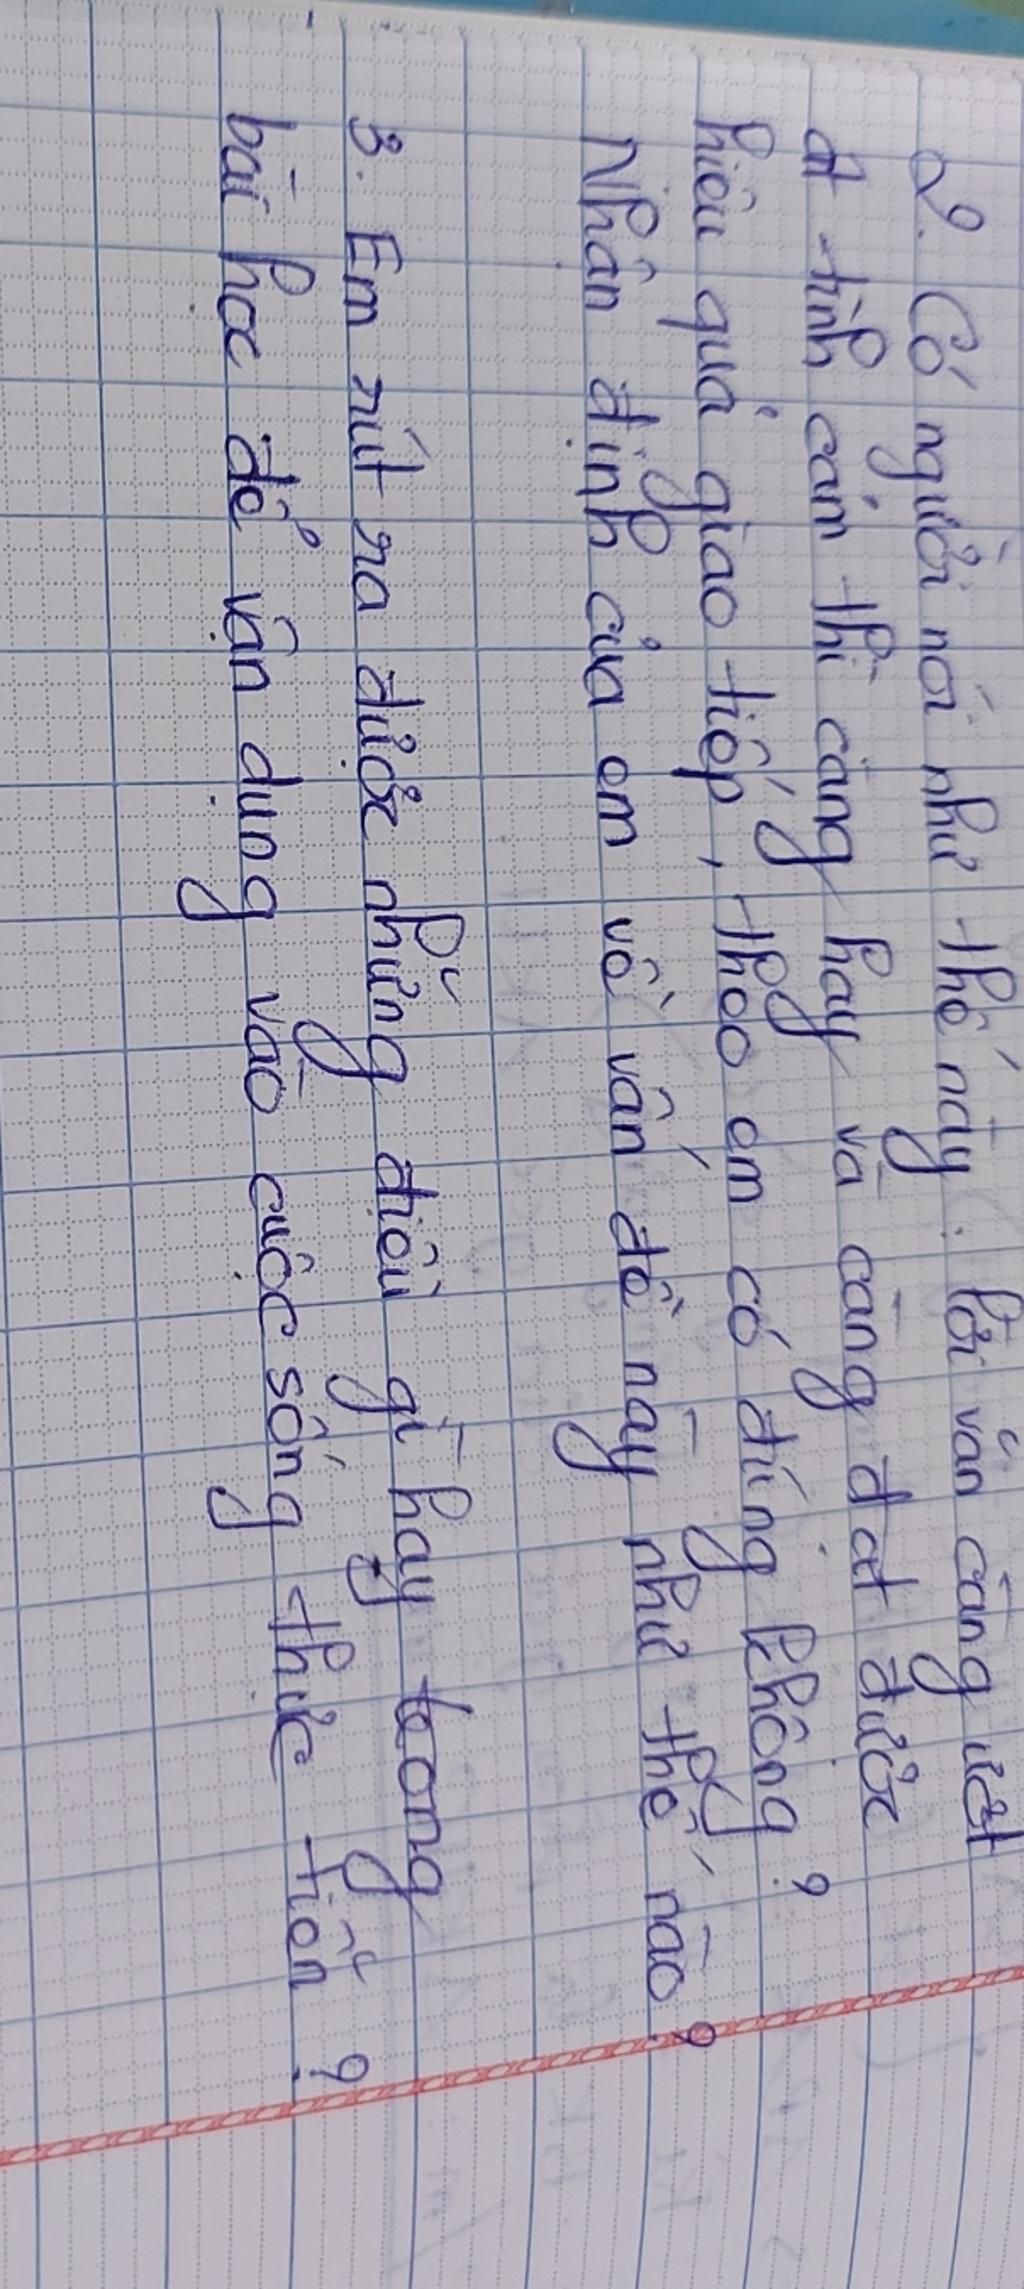 2. Có người nói như thế này. Lời văn càng ướt
át tình cảm thì càng hay và càng đạt được
hiệu quả giao tiếp, theo em có đúng không?
Nhận định của em về vấn đề này như thế nào?
3. Em rút ra được những điều gì hay trong
bài học để vận dụng vào cuộc sống thực tiễn?